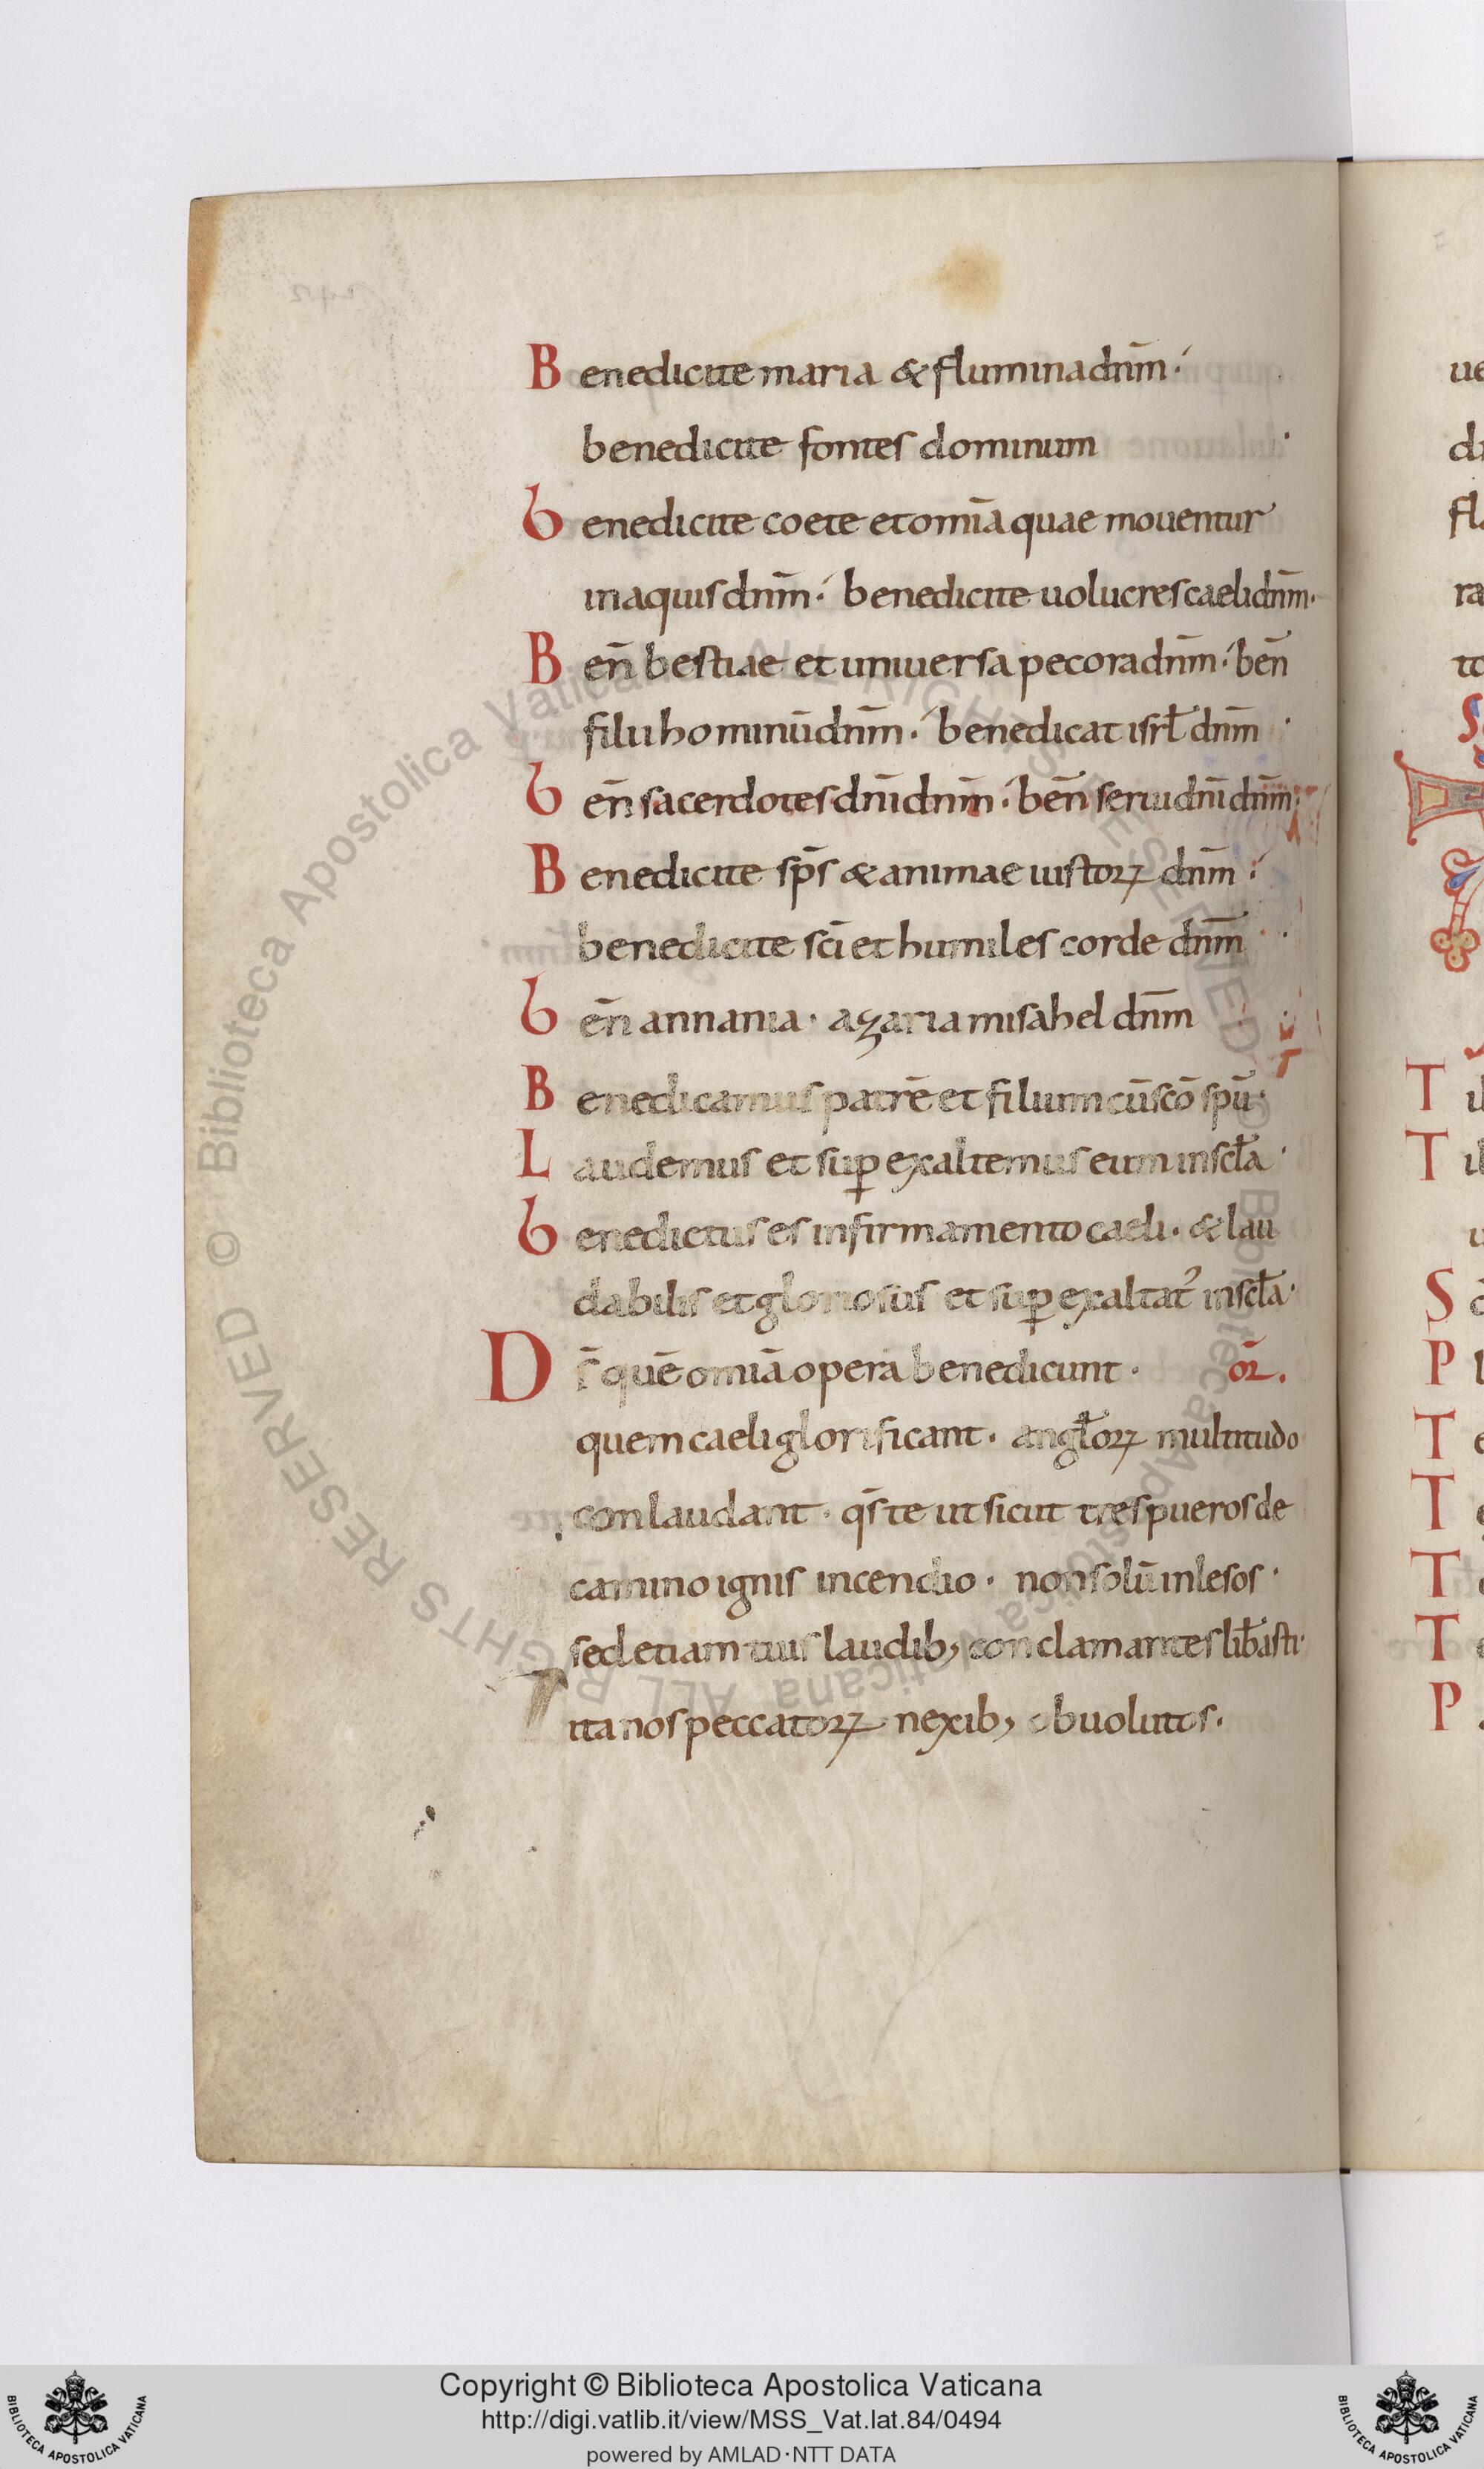 Benedicite maria & flumina dnm̄ ·
benedicite fontes dominum ·
Benedicite coete et omīa quae mouentur
in aquis dnm̄ · benedicite uolucres caeli dnm̄ ·
Ben̄ bestiae et uniuersa pecora dnm̄ · ben̄
filii hominū dnm̄ · benedicat isrł dnm̄ ·
Ben̄ sacerdotes dnī dnm̄ · ben̄ serui dnī dnm̄ ·
Benedicite sp̄s & animae iustoꝝ dnm̄ ·
benedicite scī et humiles corde dnm̄ ·
Ben̄ annania · azaria misahel dnm̄
Benedicamus patrē et filium cū scō spū ·
Laudemus et suꝑexaltemus eum in scł̄a ·
Benedictus es in firmamento caeli · & lau
dabilis et gloriosus et suꝑexaltat᾽ in scł̄a ·
Ds̄ quē omīa opera benedicunt · or̄ .
quem caeli glorificant · angłoꝝ multitudo
conlaudant · qs̄ te ut sicut tres pueros de
camino ignis incendio · non solū inlesos ·
sed etiam tuis laudib; conclamantes lib̄asti ·
ita nos peccatoꝝ nexib; obuolutos .
ue
di
fla
ra
to
T
T
S
P
T
T
T
T
P
Copyright © Biblioteca Apostolica Vaticana
http://digi.vatlib.it/view/MSS_Vat.lat.84/0494
powered by AMLAD·NTT DATA
BIBLIOTECA APOSTOLICA VATICANA
BIBLIOTECA APOSTOLICA VATICANA
© Biblioteca Apostolica Vaticana ALL RIGHTS RESERVED © Biblioteca Apostolica Vaticana ALL RIGHTS RESERVED